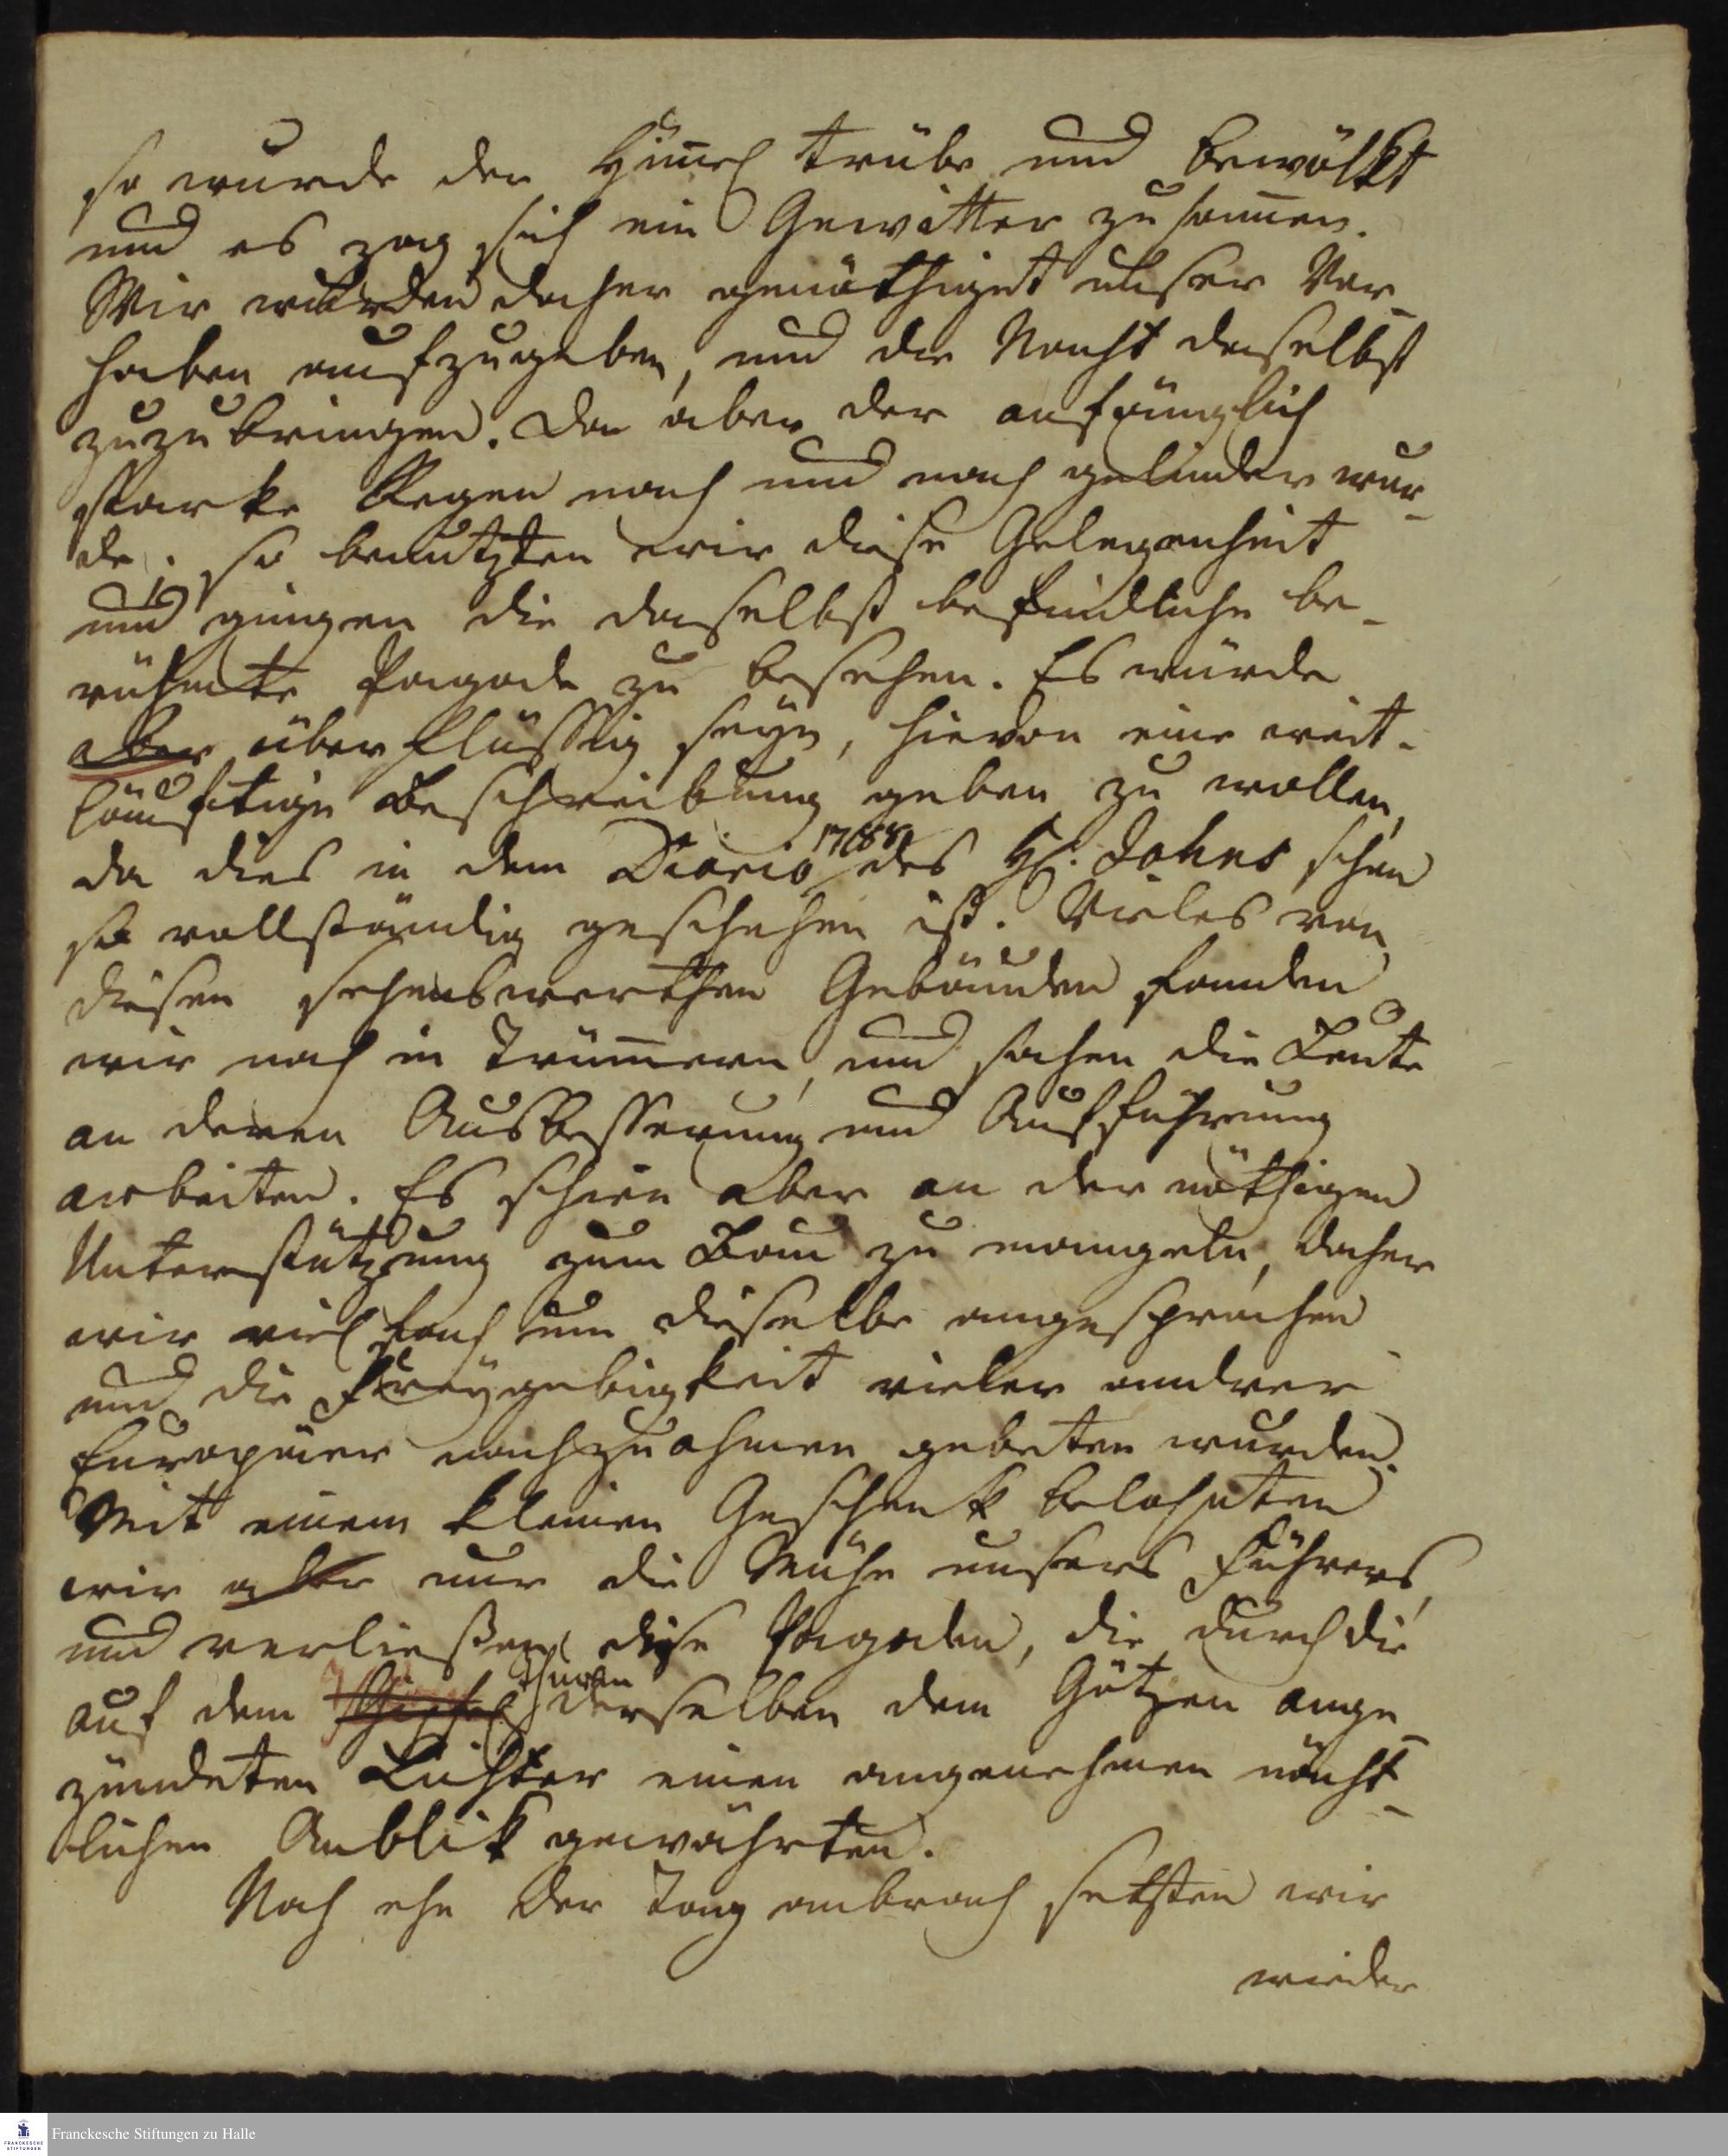 so wurde der Himel trübe und bewölkt
und es zog sich ein Gewitter zusamen.
Wir wurden daher genöthiget unser Vor-
haben aufzugeben, und die Nacht daselbst
zuzubringen. Da aber der anfänglich
starke Regen nach und nach gelinder wur-
de; so benutzten wir diese Gelegenheit
und gingen die daselbst befindliche be-
rühmte Pagode zu besehen. Es würde
aber überflüssig seyn, hievon eine weit-
läuftige Beschreibung geben zu wollen,
da dies in dem Diario 1788 des H. Johns schon
so vollständig geschehen ist. Vieles von
diesen sehenswerthen Gebäuden fanden
wir noch in Trümern, und sahen die Leute
an deren Ausbesserung und Aufführung
arbeiten. Es schien aber an der nöthigen
Unterstützung zum Bau zu mangeln, daher
wir vielfach um dieselbe angesprochen
und die Freygebigkeit vieler andrer
Europäer nachzuahmen gebeten wurden.
Mit einem kleinen Geschenk belohnten
wir aber nur die Mühe unsers Führers,
und verließen diese Pagoden, die durch die
auf dem Gipfel Thurm derselben dem Götzen ange-
zündeten Lichter einen angenehmen nächt-
lichen Anblik gewährten.
Noch ehe der Tag anbrach setzten wir
wieder
Franckesche Stiftungen zu Halle
FRANCKESCHE
STIFTUNGEN